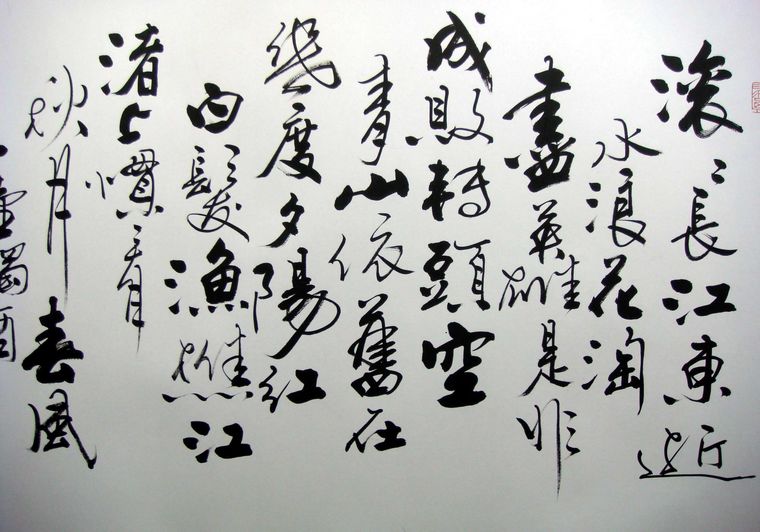 滚〻長江東逝
水浪花淘
盡英雄是非
成敗轉頭空
青山依舊在
幾度夕陽紅
白髮漁樵江
渚上慣看
秋月春風
一壺濁酒